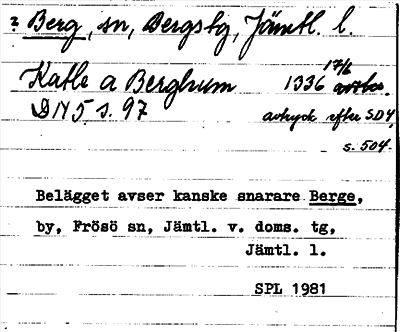 ? Berg, sn, Bergs tg, Jämtl. l.
Katle a Berghum 1336 17/6
DN 5 s. 97 avtryck efter SD 4,
s. 504.
Belägget avser kanske snarare Berge,
by, Frösö sn, Jämtl. v. doms. tg,
Jämtl. l.
SPL 1981